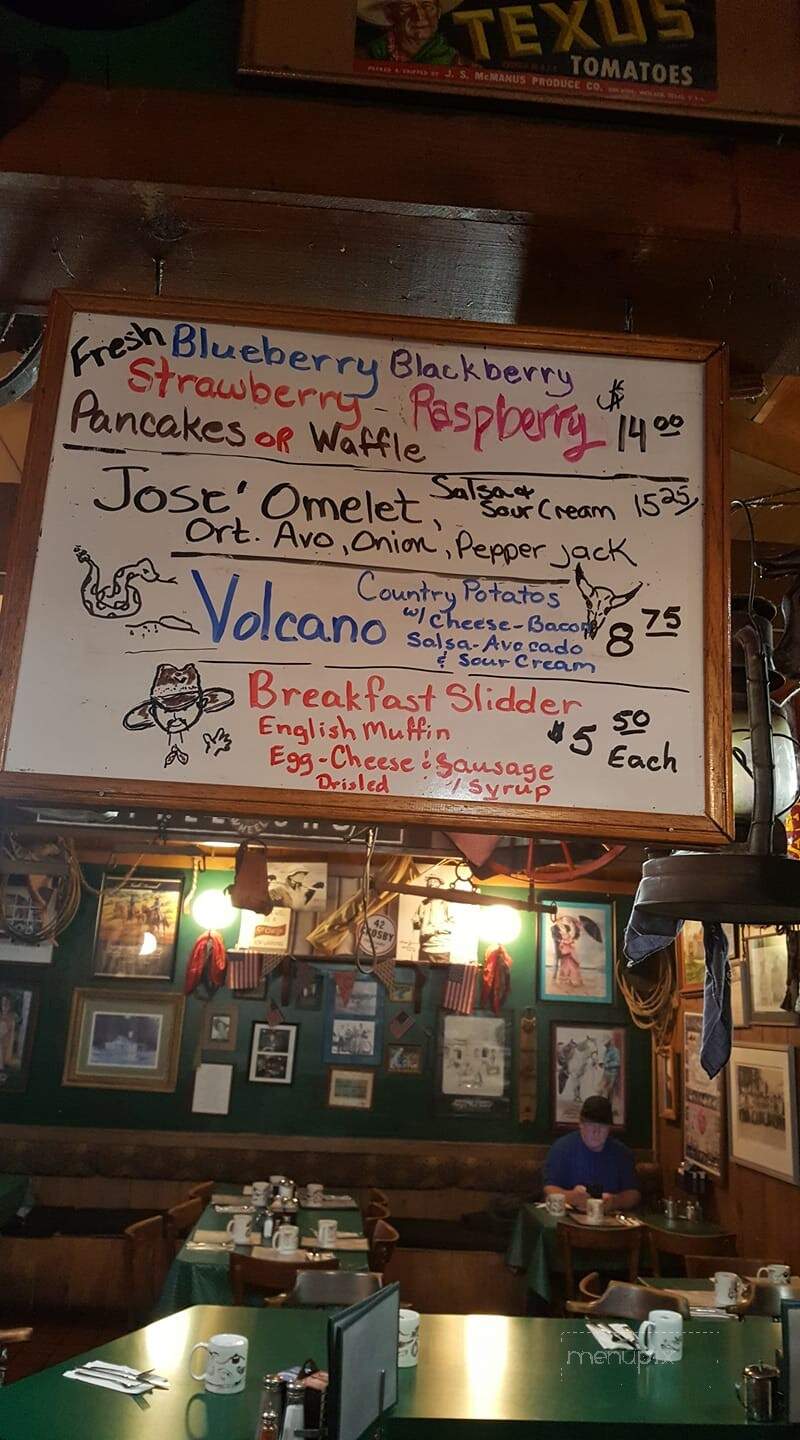 TEXUS
TOMATOES
PACKED & SHIPPED BY J. S. McMANUS PRODUCE CO.
Fresh Blueberry Blackberry
Strawberry - Raspberry
Pancakes OR Waffle $ 14 00
Jose' Omelet, Salsa &
Sour Cream 15 25
Ort. Avo, Onion, Pepper jack
Volcano Country Potatos
w/ Cheese-Bacon
Salsa-Avocado
& Sour Cream 8 75
Breakfast Slidder
English Muffin
Egg-Cheese & Sausage
Drisled w/ Syrup
$5 50 Each
42
CROSBY
menupix